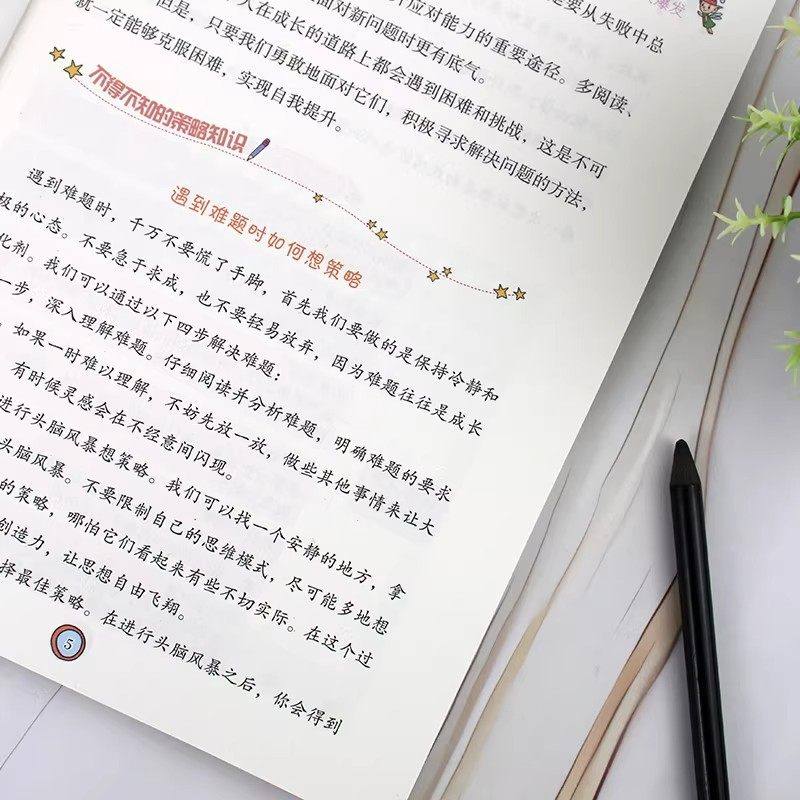 爆发
要从失败中总
应对能力的重要途径。多阅读、
面对新问题时更有底气。
人在成长的道路上都会遇到困难和挑战，这是不可
但是，只要我们勇敢地面对它们，积极寻求解决问题的方法，
就一定能够克服困难，实现自我提升。
不得不知的策略知识
遇到难题时如何想策略
遇到难题时，千万不要慌了手脚，首先我们要做的是保持冷静和
极的心态。不要急于求成，也不要轻易放弃，因为难题往往是成长
化剂。我们可以通过以下四步解决难题：
一步，深入理解难题。仔细阅读并分析难题，明确难题的要求
如果一时难以理解，不妨先放一放，做些其他事情来让大
有时候灵感会在不经意间闪现。
进行头脑风暴想策略。我们可以找一个安静的地方，拿
头脑风暴。不要限制自己的思维模式，尽可能多地想
的策略，哪怕它们看起来有些不切实际。在这个过
创造力，让思想自由飞翔。
择最佳策略。在进行头脑风暴之后，你会得到
5